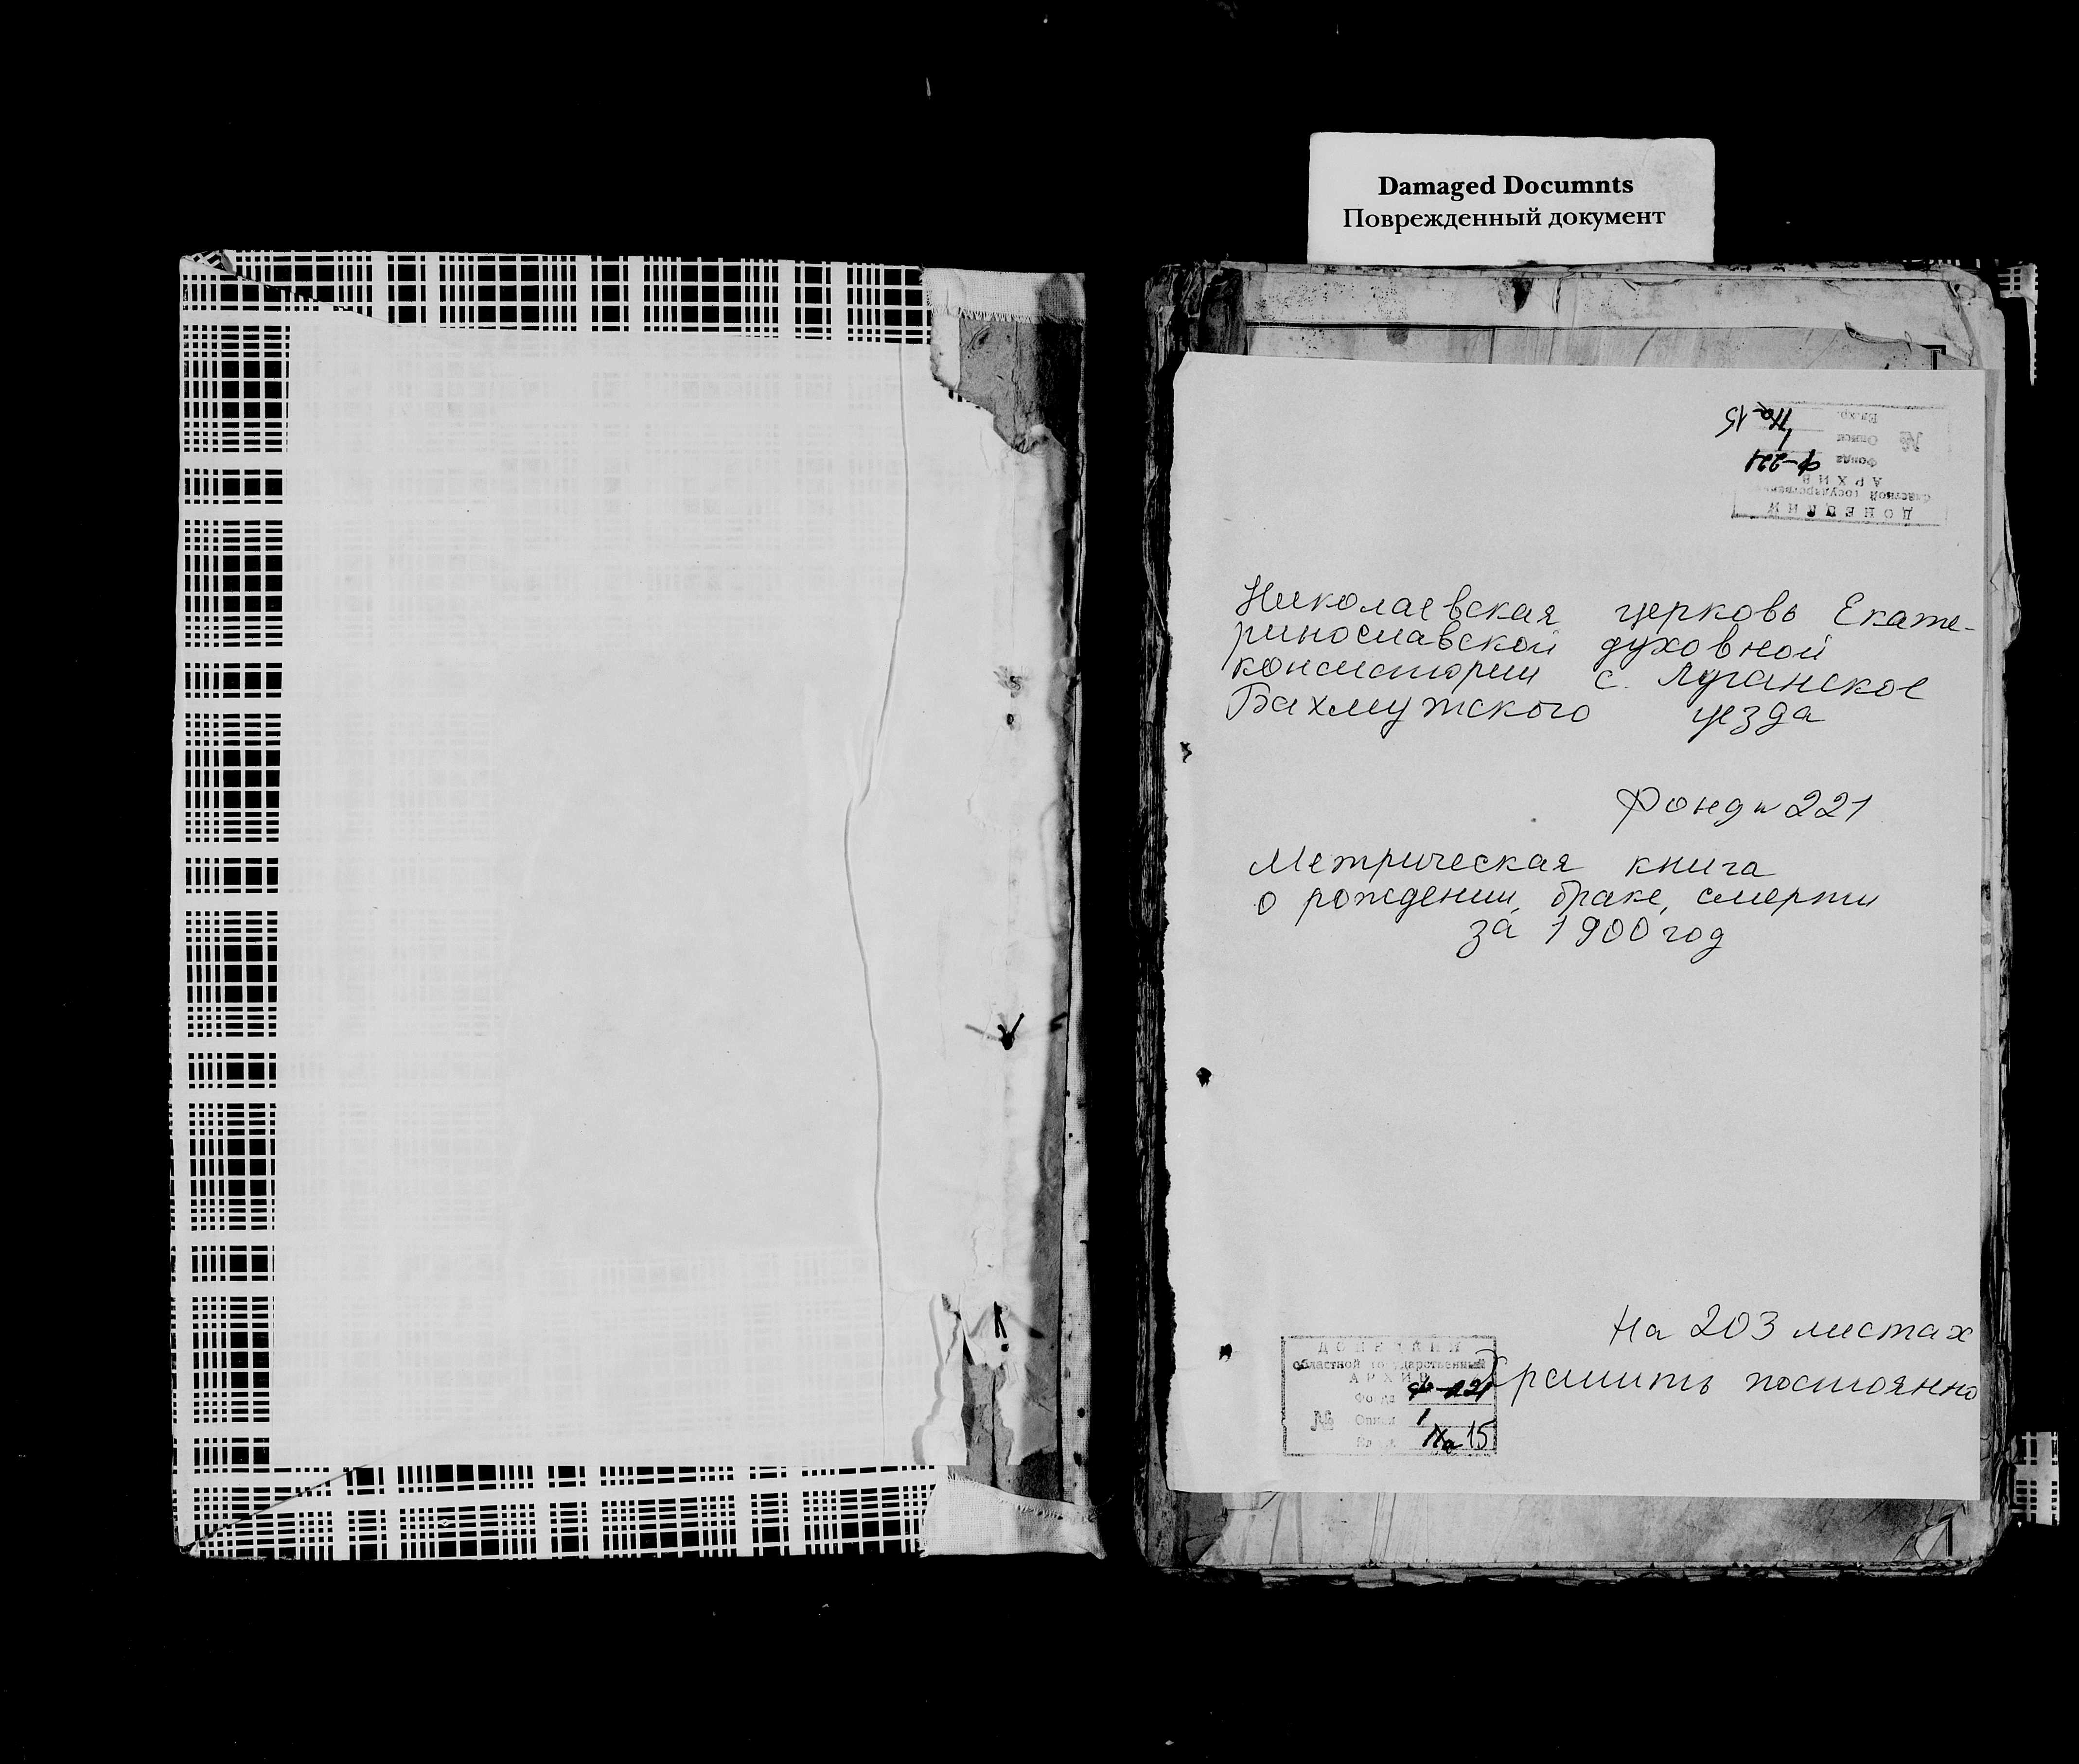 Damaged Documnts
Поврежденный документ
ДОНЕЦКИЙ
областной государственный
АРХИВ
Фонда Ф-221
№ Описи 1
Ед.хр. 15
Николаевская церковь Екате-
ринославской духовной
консистории с. Луганское
Бахмутского уезда
Фонд № 221
Метрическая книга
о рождении, браке, смерти
за 1900 год
На 203 листах
Хранить постоянно
ДОНЕЦКИЙ
областной государственный
АРХИВ
Фонда Ф-221
№ Описи 1
15